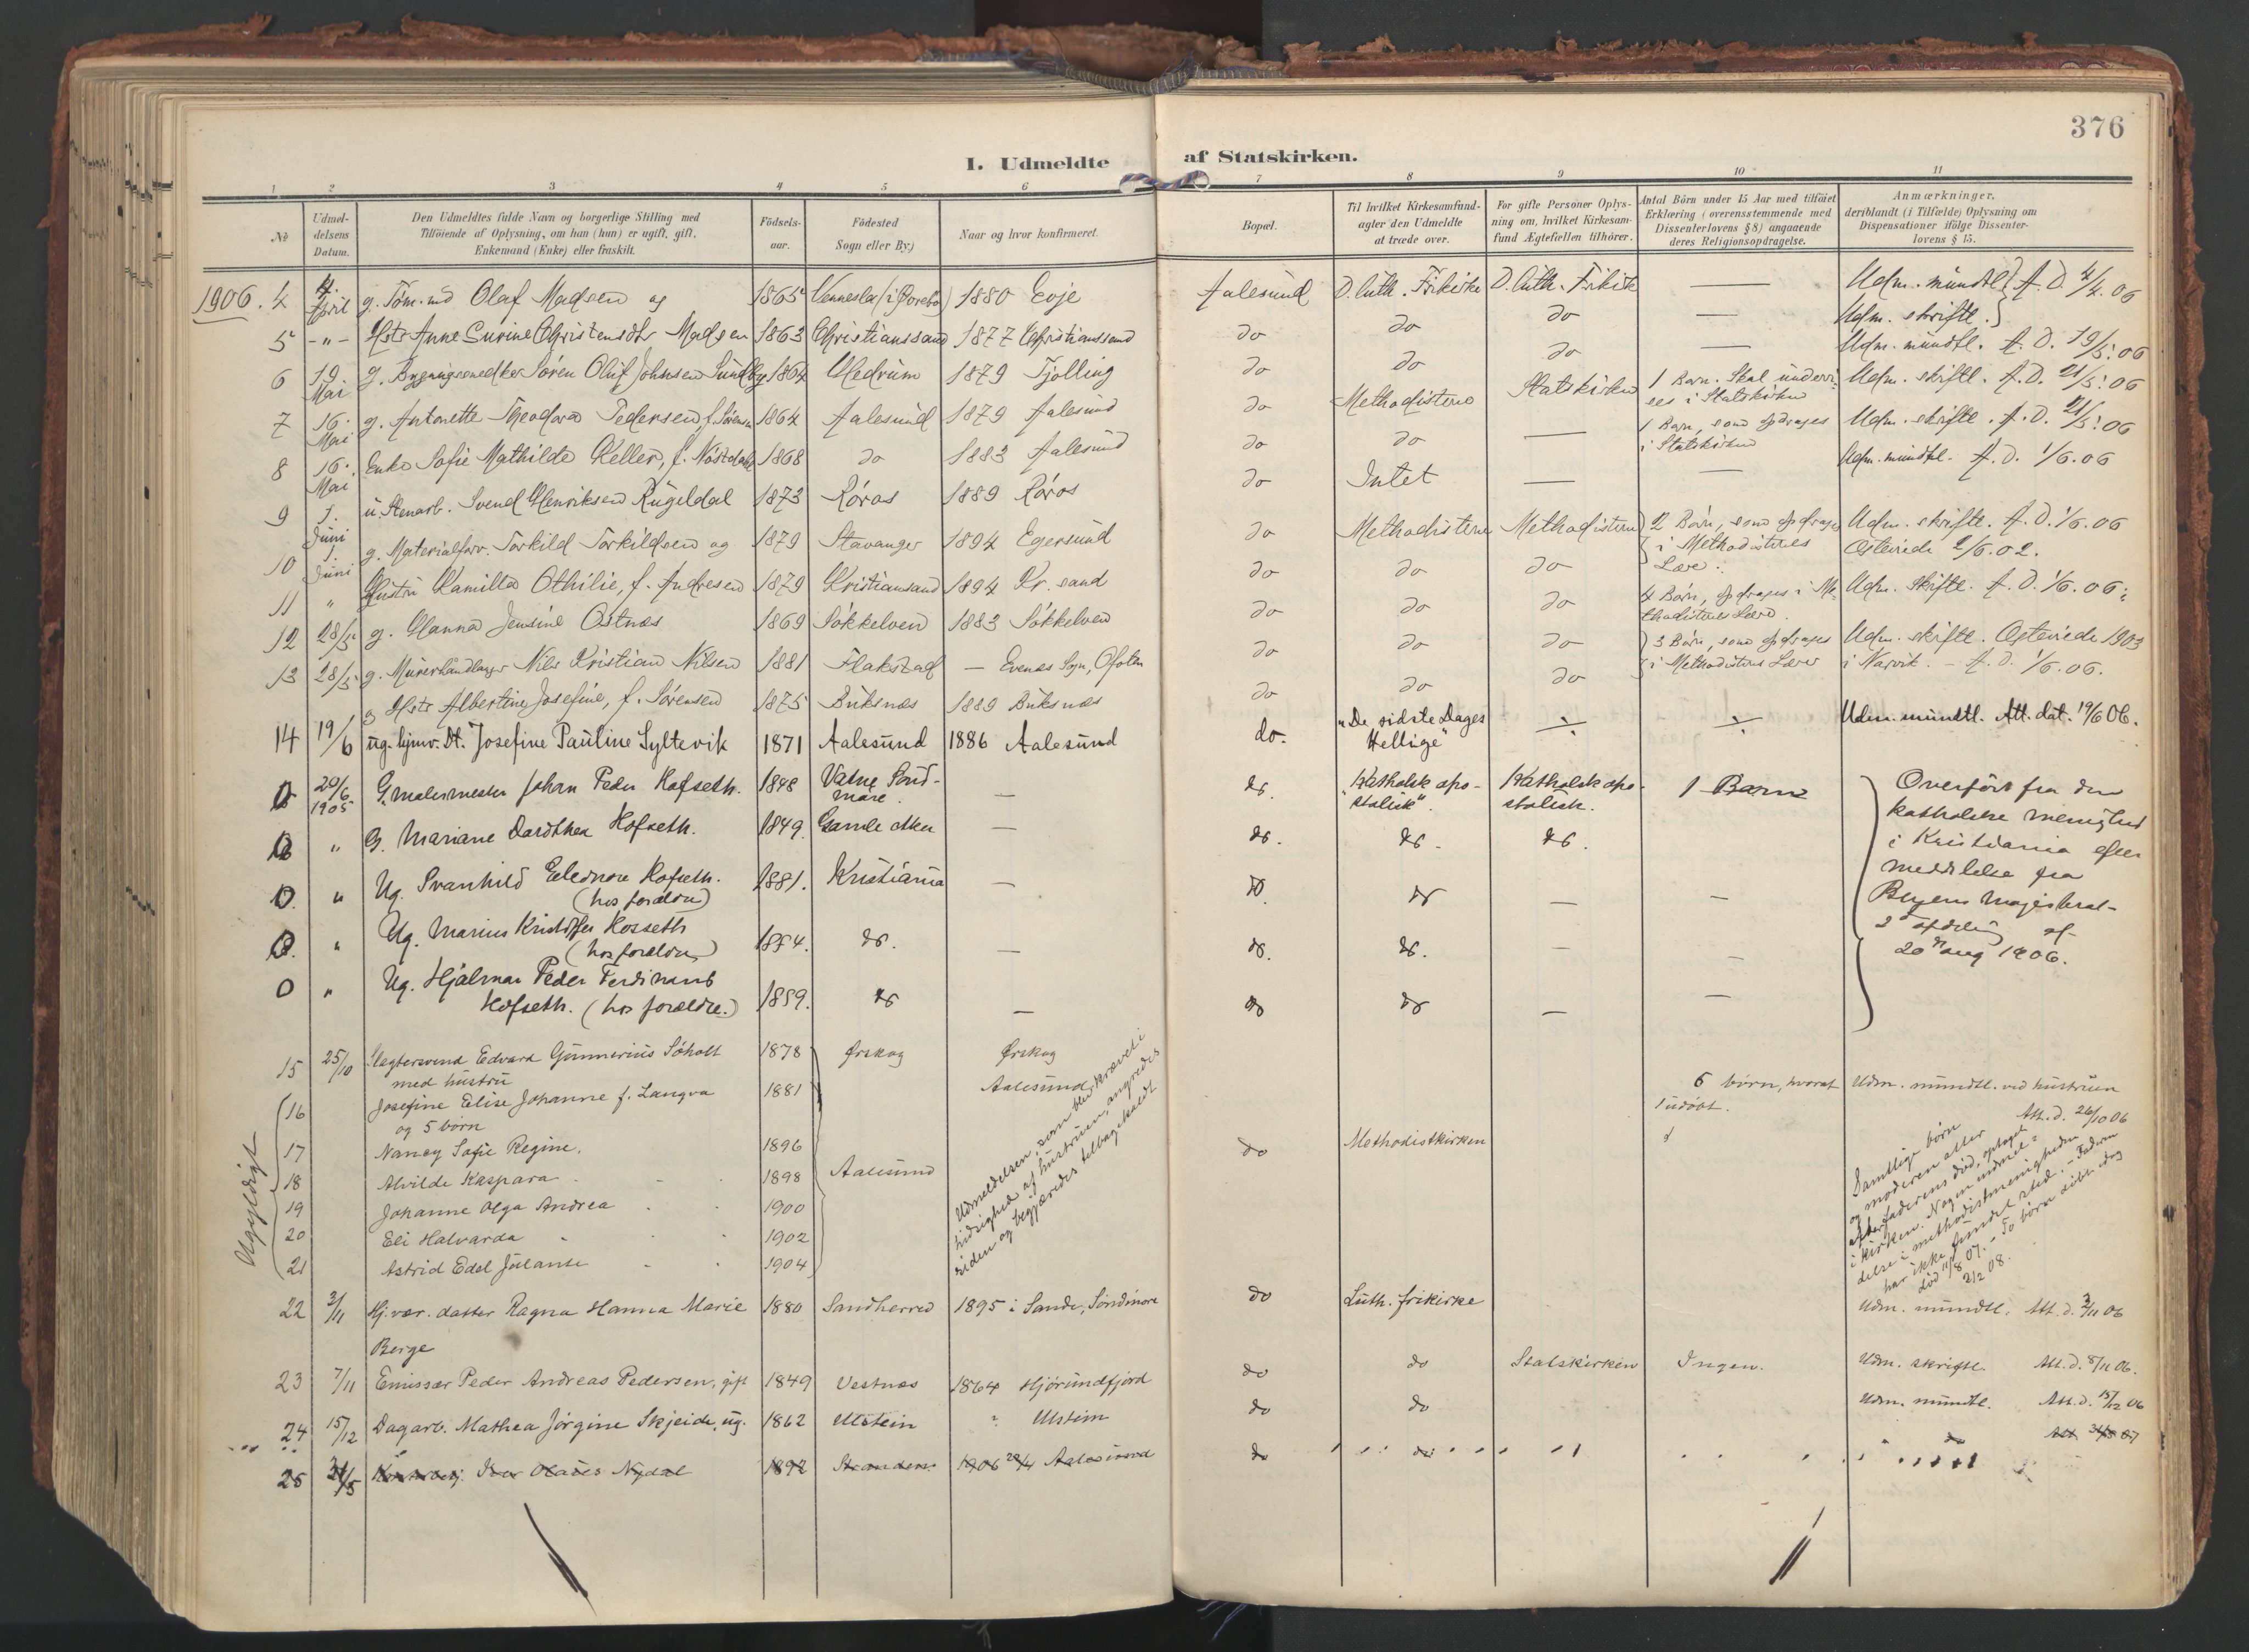 376
I. Udmeldte af Statskirken.
1 2 3 4 5 6 7 8 9 10 11
№
Udmeldelsens Datum.
Den Udmeldtes fulde Navn og borgerlige Stilling med Tilföiende af Oplysning, om han (hun) er ugift, gift, Enkemand (Enke) eller fraskilt.
Födselsaar.
Födested Sogn eller By)
Naar og hvor konfirmeret.
Bopæl.
Til hvilket Kirkesamfund agter den Udmeldte at træde over.
For gifte Personer Oplysning om, hvilket Kirkesamfund Ægtefællen tilhörer.
Antal Börn under 15 Aar med tilföiet Erklæring (overensstemmende med Dissenterlovens § 8) angaaende deres Religionsopdragelse.
Anmærkninger, deriblandt (i Tilfælde) Oplysning om Dispensationer ifölge Dissenterlovens § 15.
1906. 4 4. April g. Töm.md Olaf Madsen og 1865 Vennesla (i Övrebø) 1880 Evje Aalesund D. luth. Frikirke D. luth. Frikirke — Udm. mundtl. A. D. 4/4.06
5 -"- Hstr Anne Surine Christensdtr Madsen 1863 Christianssand 1877 Christianssand do do do — Udm. skriftl.
6 19. Mai g. Bygningssnedker Sören Oluf Johnsen Sundby 1864 Hedrum 1879 Tjölling do do do — Udm. mundtl. A. D. 19/5.06
7 16. Mai g. Antonette Theodora Pedersen f. Sörensen 1864 Aalesund 1879 Aalesund do Methodisterne Statskirken 1 Barn. Skal undervises i Statskirken Udm. skriftl. A. D. 21/5.06
8 16. Mai Enke Sofie Mathilde Keller, f. Nöstdahl 1868 do 1883 Aalesund do do — 1 Barn, som opdrages i Statskirken Udm. skriftl. A. D. 21/5.06
9 1. Juni u. Stenarb. Svend Henriksen Rugeldal 1873 Röros 1889 Röros do Intet — — Udm. mundtl. A. D. 1/6.06
10 1. Juni g. Materialforv. Torkild Torkildsen og 1879 Stavanger 1894 Egersund do Methodisterne Methodisterne 2 Börn, som opdrages i Methodisternes Lære. Udm. skriftl. A. D. 1/6.06
11 " Hustru Kamilla Othilie, f. Andresen 1879 Kristiansand 1894 Kr.sand do do do 2/6.02.
12 28/5 g. Hanna Jensine Östnæs 1869 Sökkelven 1883 Sökkelven do do do 4 Börn, opdrages i Methodisternes Lære. Udm. skriftl. A. D. 1/6.06
13 28/5 g. Murerhandlanger Nils Kristian Nilsen 1881 Flakstad — Evenæs Sogn, Ofoten do do do 3 Börn, som opdrages i Methodisternes Lære Udm. skriftl. 1903 i Narvik. - A. D. 1/6.06.
g Hstr Albertine Josefine, f. Sörensen 1875 Buksnæs 1889 Buksnæs do do do
14 19/6 ug. hjmv. Dt. Josefine Pauline Syltevik 1871 Aalesund 1886 Aalesund do. "De sidste Dages Hellige" ÷ ÷ Udm. mundtl. Att. dat. 19/6 06.
0 20/6 1905 G. malermester Johan Peder Hofseth. 1848 Vatne Söndmøre. — do. "Katholsk apostolisk". Katholsk apostolisk. 1 Barn Overfört fra den katholske menighed i Kristiania efter meddelelse fra Byens Magistrat 2den afdeling af 20de aug 1906.
0 " G. Mariane Dordthea Hofseth. 1849. Gamle Aker — do. do. do.
0. " Ug. Svanhild Eleonore Hofseth. (hos forældre) 1881. Kristiania — do. do — —
0. " Ug. Marius Kristoffer Hofseth (hos forældre) 1884. do. — do. do. — —
0 " Ug. Hjalmar Peder Ferdinand Hofseth. (hos forældre.) 1889. do — do do — —
15 25/10 Slagtersvend Edvard Gunnerius Söholt med hustru 1878 Ørskog Ørskog
6 börn, hvoraf 1 udöbt. Udm. mundtl. ved hustruen Att. d. 26/10 06
16 Josefine Elise Johanne f. Langva og 5 börn 1881 Aalesund
17 Nancy Sofie Regine. 1896 do Methodistkirken
18 Alvilde Kaspara 1898 Aalesund
19 Johanne Olga Andrea 1900
20 Eli Halvarda 1902
21 Astrid Edel Jolante 1904
Ugyldigt
Udmeldelsen, som blev krævet i hidsighed af hustruen, angredes siden og begjæredes tilbagekaldt
Samtlige börn og moderen atter efter faderens död, optaget i kirken. Nogen indmeldelse i methodistmenigheden har ikke fundet sted. - Faderen död 11/8 07. - To börn döbt idag 2/2 08.
22 3/11 Hj.vær. datter Ragna Hanna Marie Berge 1880 Sandherred 1895 i Sande, Söndmöre do Luth. frikirke Udm. mundtl. Att. d. 3/11 06
23 7/11 Emissær Peder Andreas Pedersen, gift 1849 Vestnæs 1864 Hjörundfjord do do Statskirken Ingen. Udm. skriftl. Att. d. 8/11 06.
24 15/12 Dagarb. Mathea Jörgine Skjeide, ug. 1862 Ulstein " Ulstein do do Udm. mundtl. Att. d. 15/12 06
25 31/5 Olaus Nydal 1892 1906 Aalesund do do do